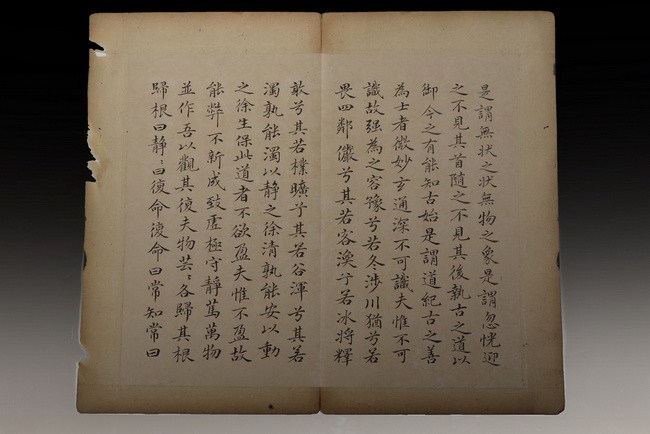 是謂無状之状無物之象是謂忽恍迎
之不見其首随之不見其後執古之道以
御今之有能知古始是謂道紀古之善
為士者微妙玄通深不可識夫惟不可
識故强為之容豫兮若冬涉川猶兮若
畏四鄰儼兮其若容渙兮若冰將釋
敦兮其若樸曠兮其若谷渾兮其若
濁孰能濁以静之徐清孰能安以動
之徐生保此道者不欲盈夫惟不盈故
能弊不新成致虛極守靜篤萬物
並作吾以觀其復夫物芸〻各歸其根
歸根曰静〻曰復命復命曰常知常曰